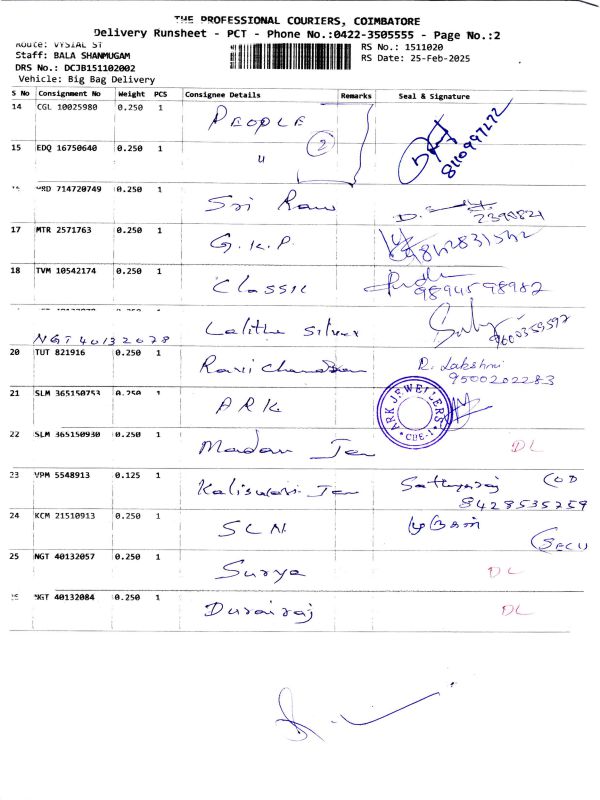 THE PROFESSIONAL COURIERS, COIMBATORE
Delivery Runsheet - PCT - Phone No.:0422-3505555 - Page No.:2
Route: VYSIAL ST
RS No.: 1511020
Staff: BALA SHANMUGAM
RS Date: 25-Feb-2025
DRS No.: DCJB151102002
Vehicle: Big Bag Delivery
S No Consignment No Weight PCS Consignee Details Remarks Seal & Signature
14 CGL 10025980 0.250 1 PEOPLE
2
8110997272
15 EDQ 16750640 0.250 1 "
714720749 0.250 1 Sri Ram
2390821
17 MTR 2571763 0.250 1 G.K.P.
9842831542
18 TVM 10542174 0.250 1 Classic
9894598982
NGT 40132078 Lalitha Silver
9600359592
20 TUT 821916 0.250 1 Ravi Chandran R. Lakshmi
9500202283
21 SLM 365150753 0.250 1 ARK
ARK JEWELLERS
CBE-1
22 SLM 365150930 0.250 1 Madan Jew DL
23 VPM 5548913 0.125 1 Kaliswari Jew Sathyaraj COD
8428535259
24 KCM 21510913 0.250 1 SLN முருகன்
(SECU
25 NGT 40132057 0.250 1 Surya DL
NGT 40132084 0.250 1 Durairaj DL